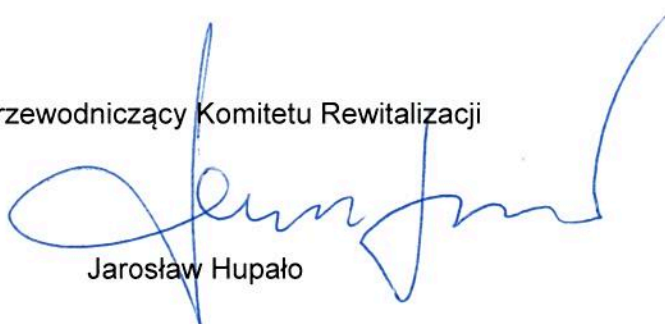 rzewodniczący Komitetu Rewitalizacji
Jarosław Hupało